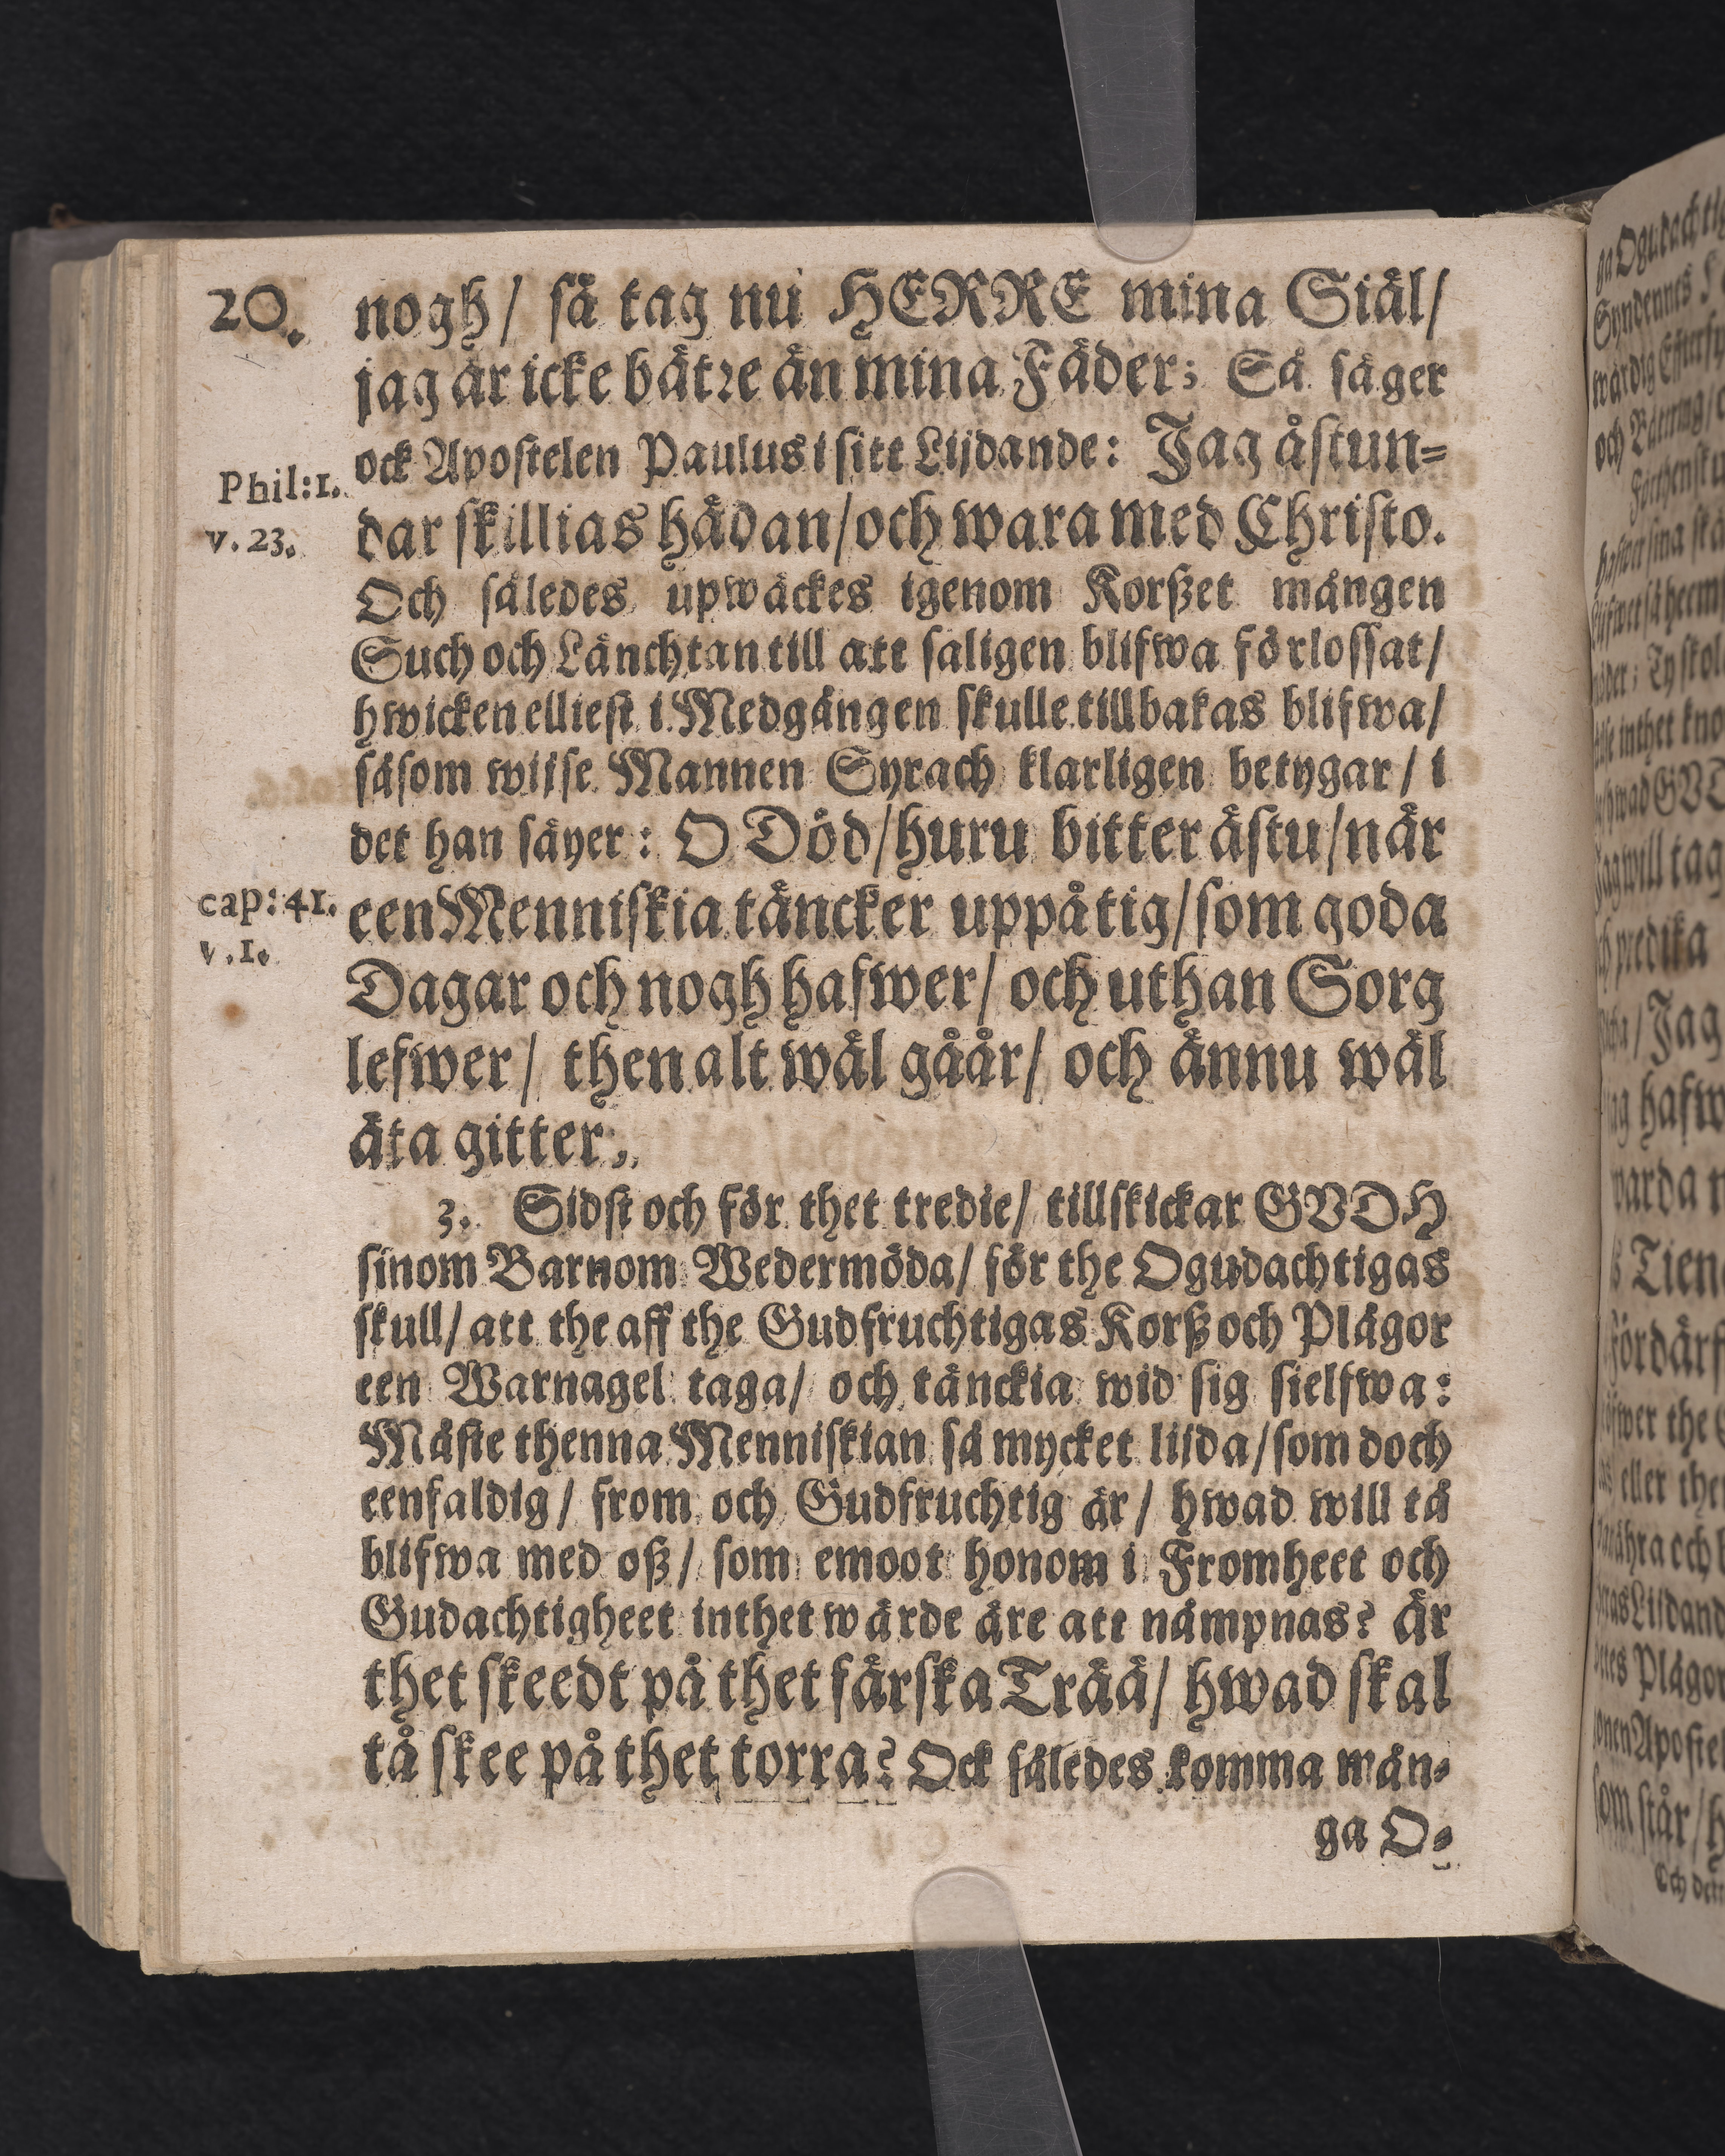 20.
nogh/ så tag nu HERRE mina Siäl/
jag är icke bätre än mina Fäder; Så säger
ock Apostelen Paulus i sitt Lijdande: Jag åstun=
Phil: 1.
v. 23.
dar skillias hädan/och wara med Christo.
Och således upwäckes igenom Korßet mången
Such och Länchtan till att saligen blifwa förlossat/
hwicken elliest i Medgången skulle tillbakas blifwa/
såsom wijse Mannen Syrach klarligen betygar/ i
det han säyer: O Död/huru bitter ästu/när
cap: 41.
v. 1.
een Menniskia täncker uppå tig/som goda
Dagar och nogh hafwer/ och uthan Sorg
lefwer/ then alt wäl gåår/ och ännu wäl
äta gitter.
3. Sidst och för thet tredie/ tillskickar GVDH
sinom Barnom Wedermöda/ för the Ogudachtigas
skull/ att the aff the Gudfruchtigas Korß och Plågor
een Warnagel taga/ och tänckia wid sig sielfwa:
Måste thenna Menniskian så mycket lijda/som doch
eenfaldig/ from och Gudfruchtig är/ hwad will tå
blifwa med oß/ som emoot honom i Fromheet och
Gudachtigheet inthet wärde äre att nämpnas? Är
thet skeedt på thet färska Trää/ hwad skal
tå skee på thet torra? Ock således komma mån=
ga O=